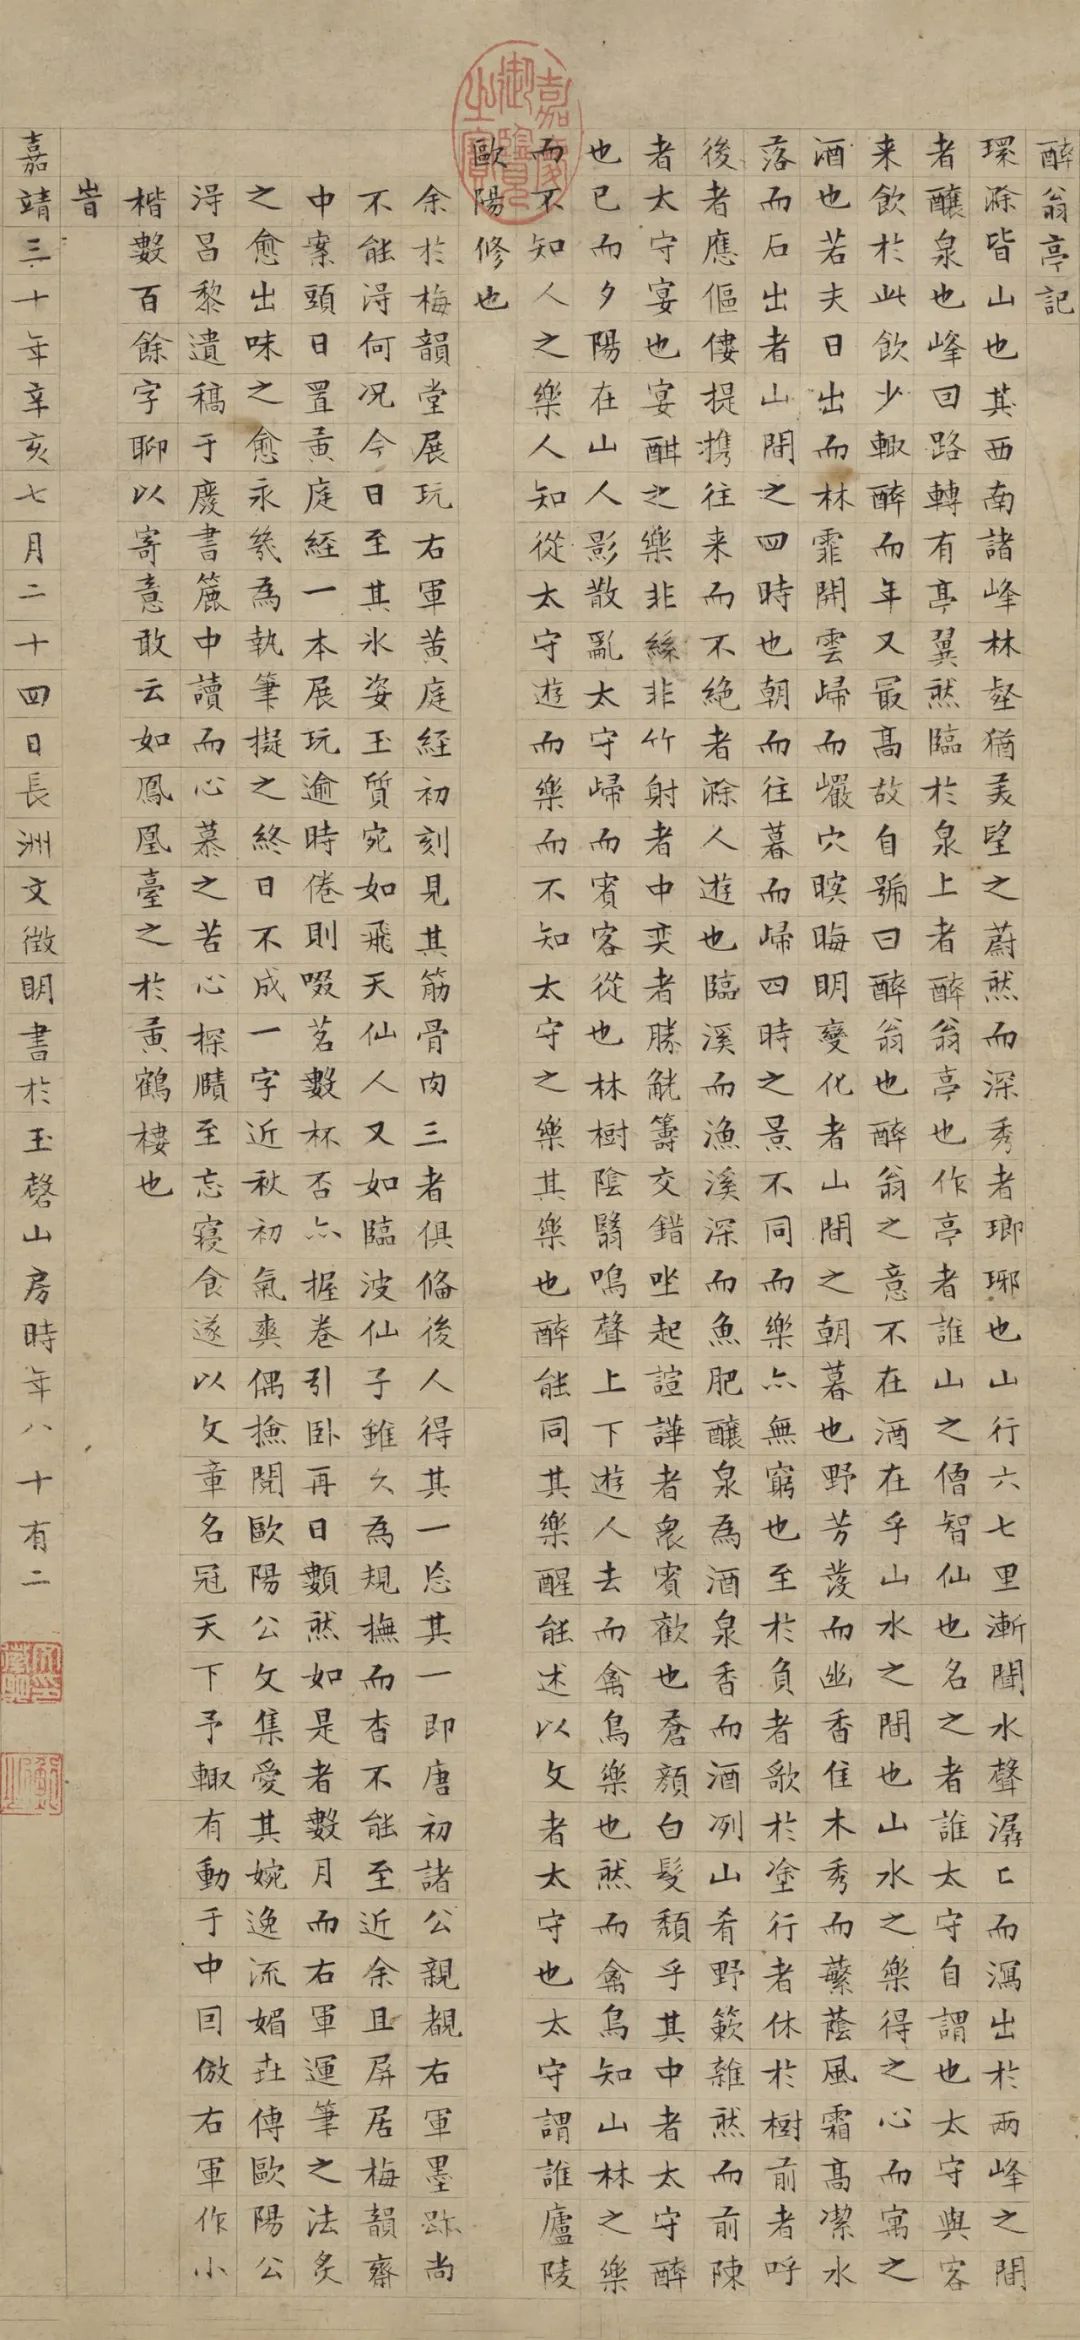 醉翁亭記
環滁皆山也其西南諸峰林壑猶美望之蔚然而深秀者瑯琊也山行六七里漸聞水聲潺〻而瀉出於兩峰之間
者釀泉也峰回路轉有亭翼然臨於泉上者醉翁亭也作亭者誰山之僧智仙也名之者誰太守自謂也太守與客
来飲於此飲少輙醉而年又最高故自號曰醉翁也醉翁之意不在酒在乎山水之間也山水之樂得之心而寓之
酒也若夫日出而林霏開雲歸而巖穴暝晦明變化者山間之朝暮也野芳發而幽香佳木秀而蘩蔭風霜高潔水
落而石出者山間之四時也朝而往暮而歸四時之景不同而樂亦無窮也至於負者歌於塗行者休於樹前者呼
後者應傴僂提携往来而不絶者滁人遊也臨溪而漁溪深而魚肥釀泉為酒泉香而酒冽山肴野蔌雜然而前陳
者太守宴也宴酣之樂非絲非竹射者中奕者勝觥籌交錯坐起諠譁者衆賓歡也蒼顏白髮頹乎其中者太守醉
也已而夕陽在山人影散亂太守歸而賓客從也林樹陰翳鳴聲上下遊人去而禽鳥樂也然而禽鳥知山林之樂
而不知人之樂人知從太守遊而樂而不知太守之樂其樂也醉能同其樂醒能述以文者太守也太守謂誰廬陵
歐陽修也
余於梅韻堂展玩右軍黄庭経初刻見其筋骨肉三者俱俻後人得其一忘其一即唐初諸公親覩右軍墨跡尚
不能淂何况今日至其氷姿玉質宛如飛天仙人又如臨波仙子雖久為規撫而杳不能至近余且屏居梅韻齋
中案頭日置黄庭経一本展玩逾時倦則啜茗數杯否亦握卷引卧再日數然如是者數月而右軍運筆之法炙
之愈出味之愈永㡬為執筆擬之終日不成一字近秋初氣爽偶撿閱歐陽公文集愛其婉逸流媚世傳歐陽公
淂昌黎遺稿于慶書簏中讀而心慕之苦心探賾至忘寝食遂以文章名冠天下予輙有動于中囙倣右軍作小
楷數百餘字聊以寄意敢云如鳳凰臺之於黄鶴樓也
旹
嘉靖三十年辛亥七月二十四日長洲文徵明書於玉磬山房時年八十有二
嘉慶御覽之寶